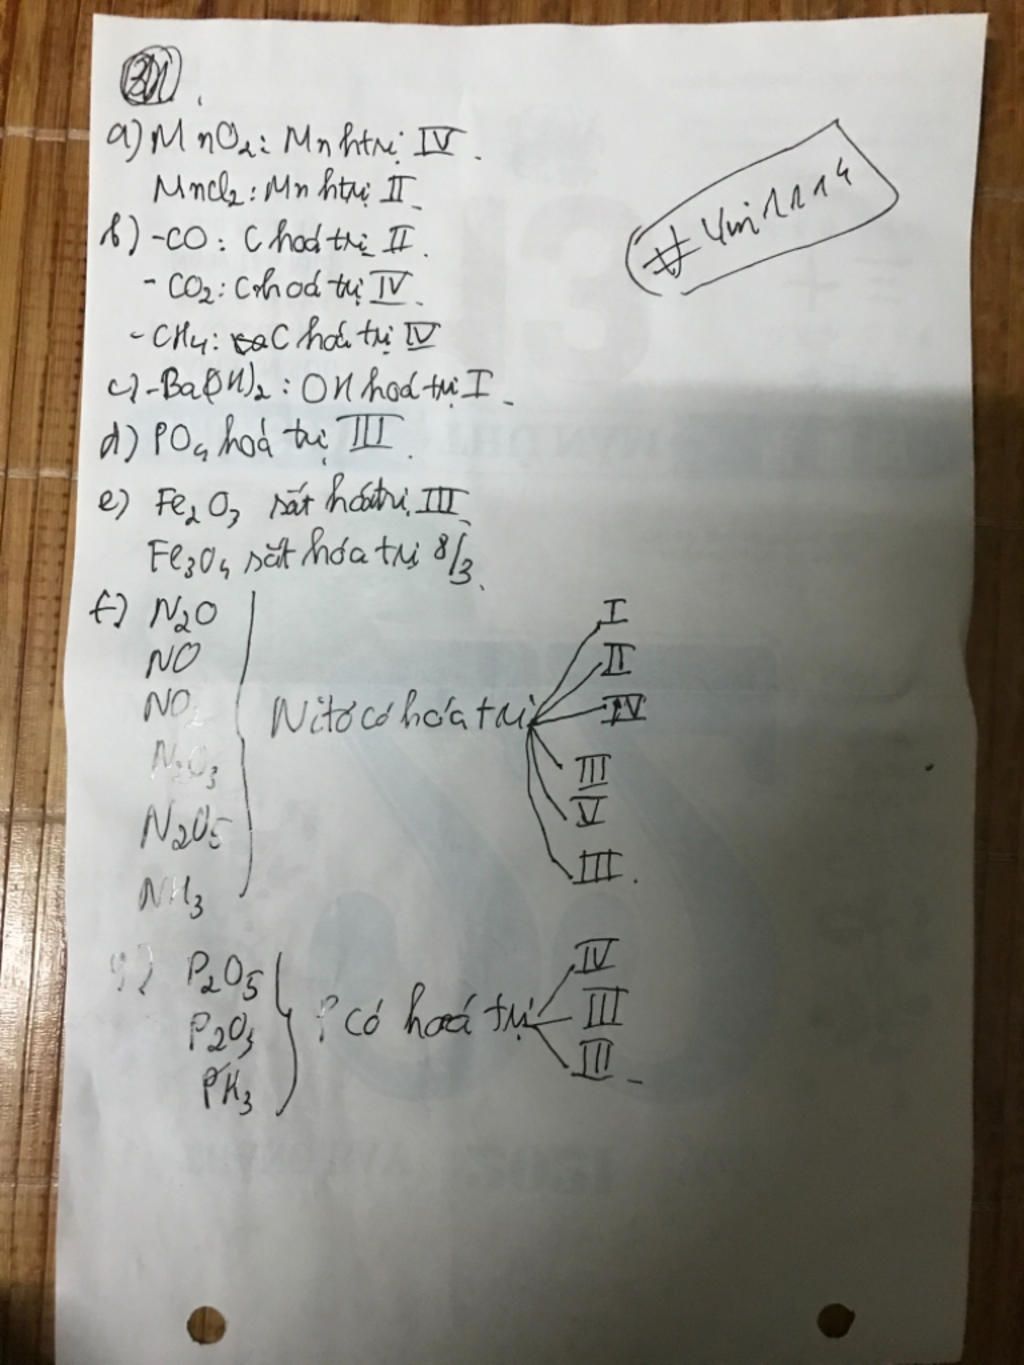 a) MnO2: Mn htrị IV.
MnCl2: Mn htrị II.
b) -CO: C hoá trị II.
- CO2: C hoá trị IV.
- CH4: C hoá trị IV
c) -Ba(OH)2: OH hoá trị I.
d) PO4 hoá trị III.
e) Fe2O3 sắt hóa trị III.
Fe3O4 sắt hóa trị 8/3.
f) N2O
NO
NO2
N2O3
N2O5
NH3
Nitơ có hóa trị
I
II
IV
III
V
III.
g) P2O5
P2O3
PH3
P có hoá trị
IV
III
III.